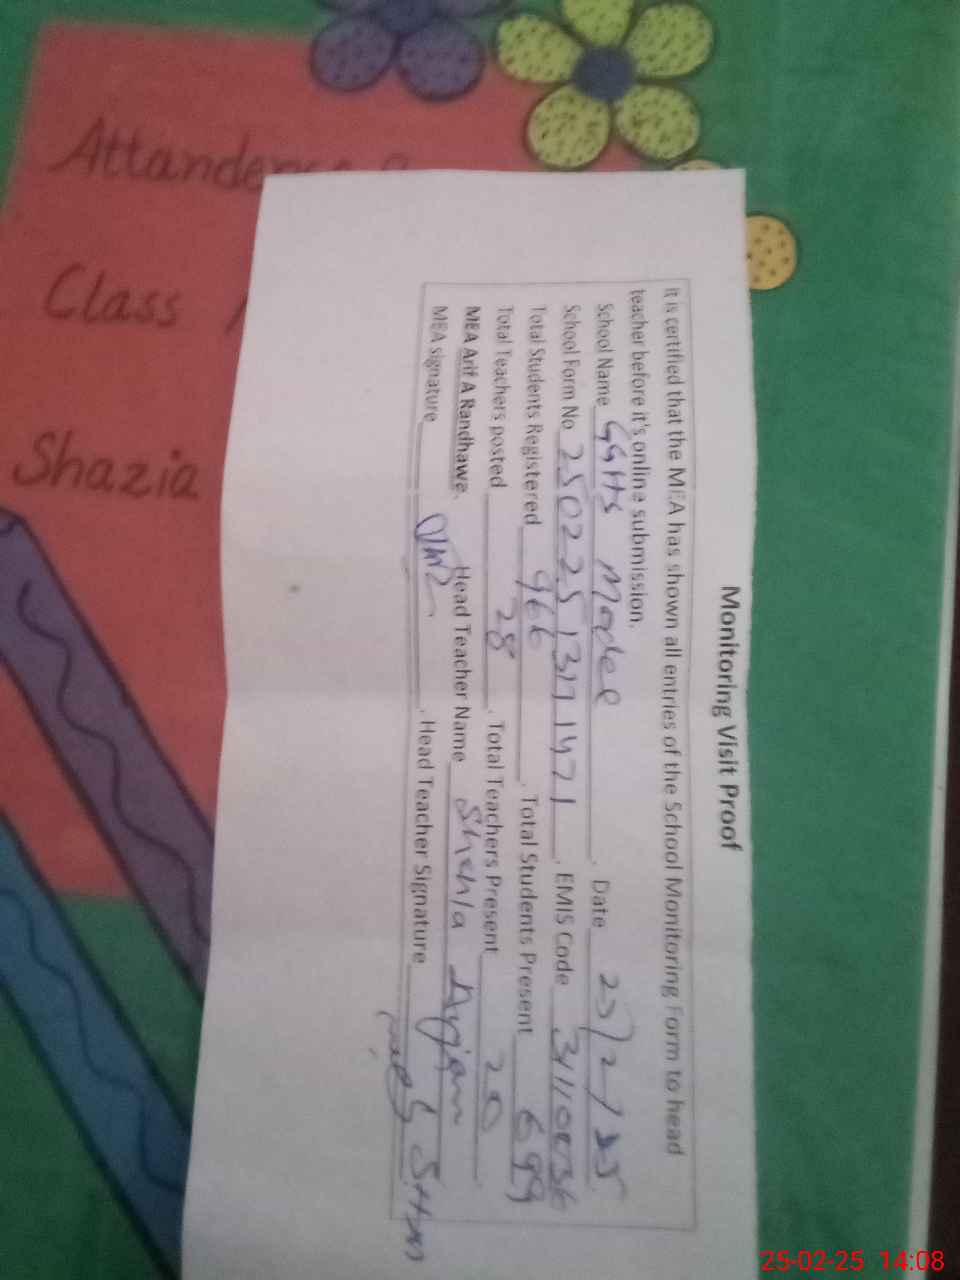 Attandence
Class
Shazia
Monitoring Visit Proof
It is certified that the MEA has shown all entries of the School Monitoring Form to head
teacher before it's online submission.
School Name GGHS Model, Date 25/2/25
School Form No 25022513171471, EMIS Code
Total Students Registered 966, Total Students Present 699
Total Teachers posted 28, Total Teachers Present 20
MEA Arif A Randhawe, Head Teacher Name Shehla Anjam
MEA signature, Head Teacher Signature
25-02-25 14:08